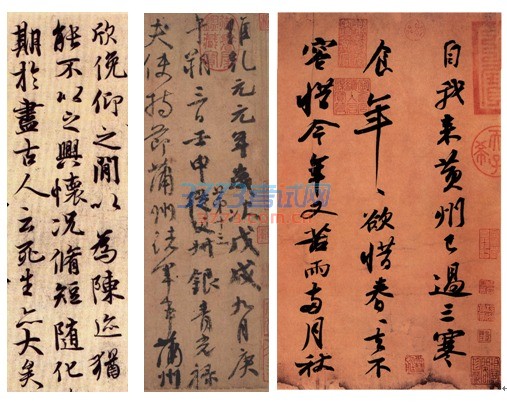 欣俛仰之閒以為陳迹猶
能不以之興懷況脩短隨化
期於盡古人云死生亦大矣
維乾元元年歲次戊戌九月庚
午朔三日壬申第十三銀青光祿
夫使持節蒲州諸軍事蒲州
自我来黄州已過三寒
食年、欲惜春、去不
容惜今年又苦雨兩月秋
3773考试网